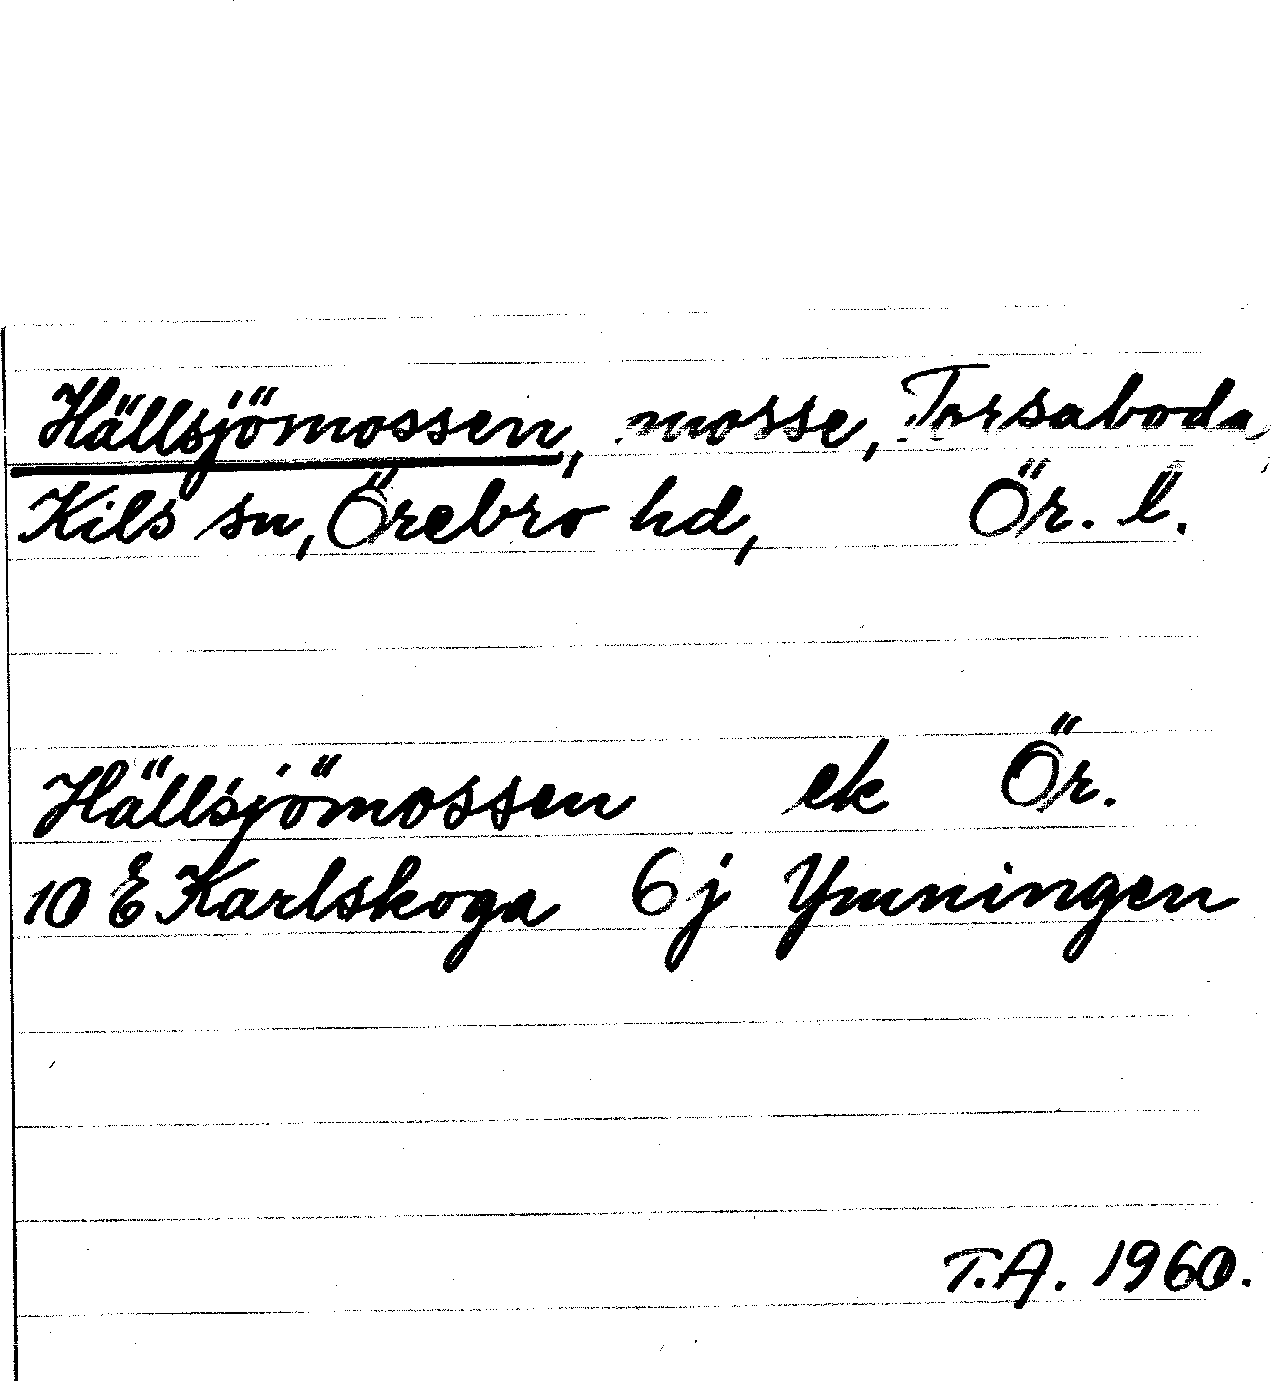 Hällsjömossen, mosse, Torsaboda,
Kils sn, Örebro hd, Ör. l.
Hällsjömossen ek Ör.
10 E Karlskoga 6j Ymningen
T.A. 1960.